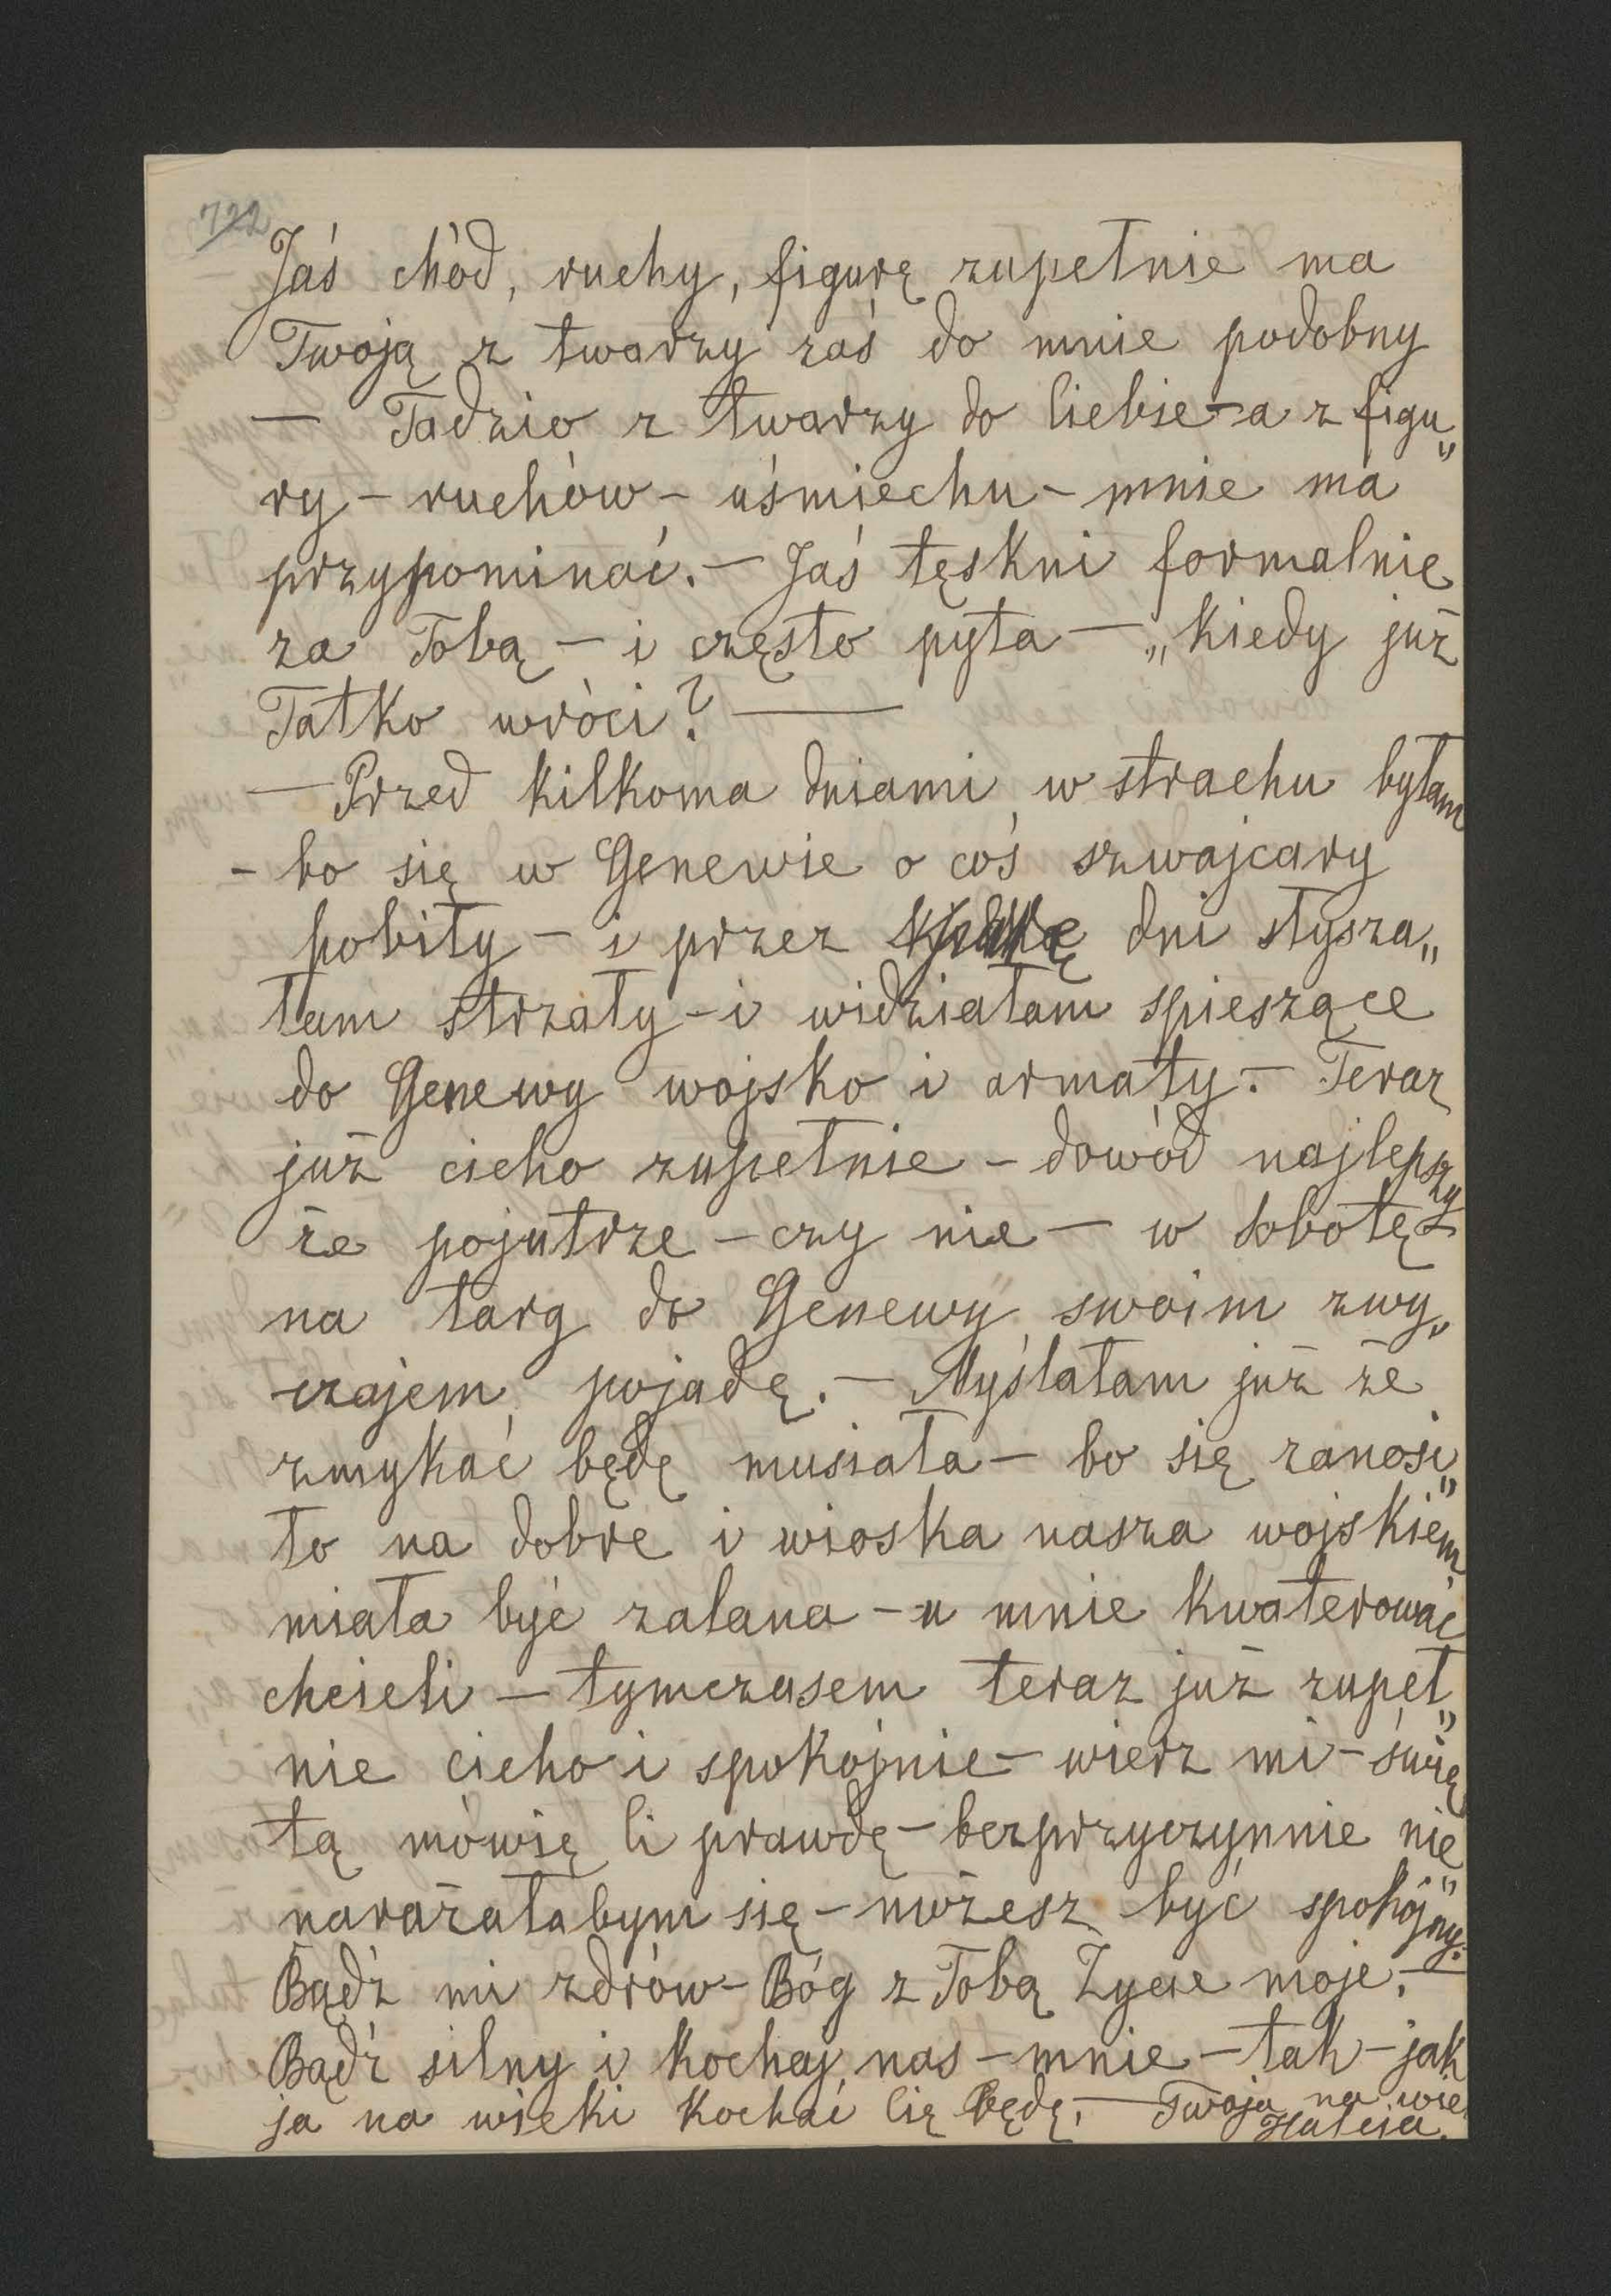 722
Jaś chód, ruchy, figurę zupełnie ma
Twoją z twarzy zaś do mnie podobny
— Tadzio z twarzy do Ciebie - a z figu„
ry - ruchów - uśmiechu - mnie ma
przypominać. — Jaś tęskni formalnie
za Tobą — i często pyta — „kiedy już
Tatko wróci? —
— Przed kilkoma dniami w strachu byłam
- bo się w Genewie o coś szwajcary
pobiły - i przez dni słysza„
łam strzały - i widziałam spieszące
do Genewy wojsko i armaty. — Teraz
już cicho zupełnie - dowód najlepszy
że pojutrze - czy nie — w sobotę
na targ do Genewy swoim zwy„
czajem, pojadę. — Myślałam już że
zmykać będę musiała — bo się zanosi„
ło na dobre i wioska nasza wojskiem
miała być zalana - u mnie kwaterować
chcieli — tymczasem teraz już zupeł„
nie cicho i spokojnie — wierz mi - świę„
tą mówię Ci prawdę - bezprzyczynnie nie
narażałabym się - możesz być spokojny. —
Bądź mi zdrów - Bóg z Tobą Życie moje. —
Bądź silny i kochaj nas - mnie - tak - jak
ja na wieki kochać Cię będę. — Twoja na wie
Halcia.